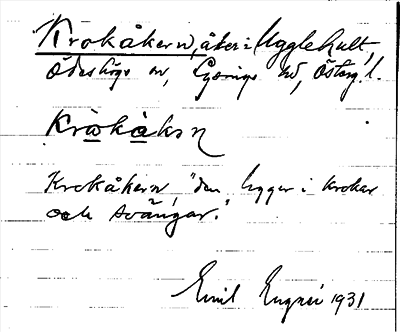 Krokåkern, åker i Ugglehult,
Ödeshögs sn, Lysings hd, Österg. l.
Kròkàkọn
Krokåkern, "den ligger i krokar
och svängar."
Emil 1931